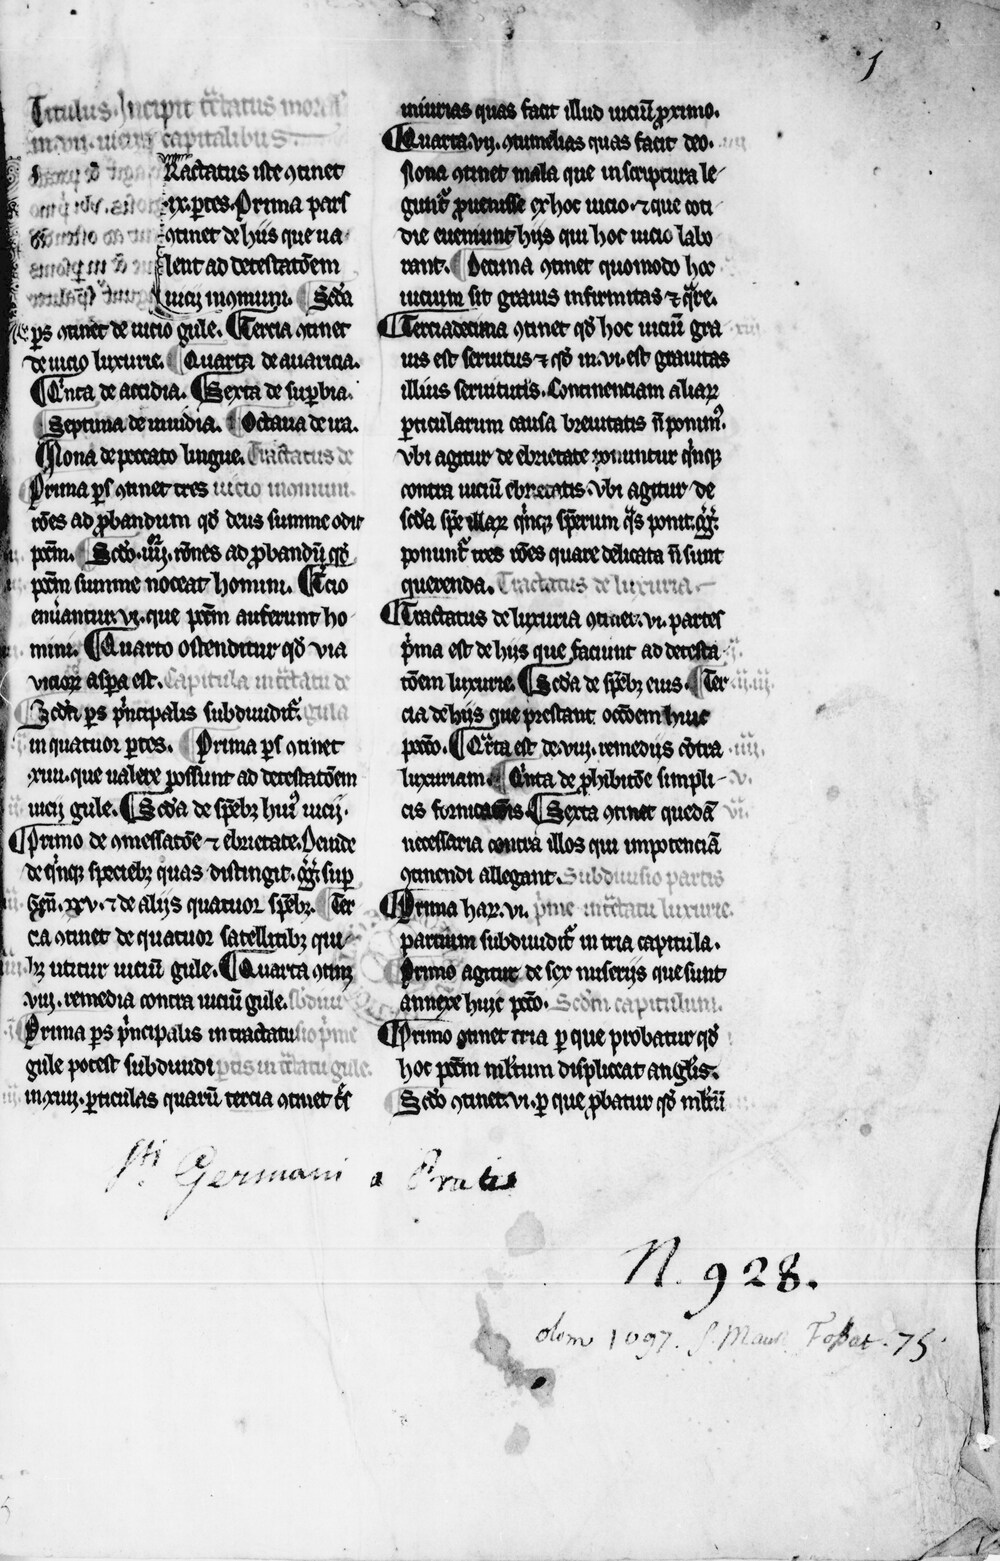 1
Titulus. Incipit tractatus moralis
in. vii. viciis capitalibus.
Tractatus iste ɔtinet
ix. ptes. Prima pars
ɔtinet de hiis que ua
lent ad detestatōem
uicij in ɔmuni. Scd̄a
ps ɔtinet de uicio gule. Tercia ɔtinet
de uicio luxurie. Quarta de auaricia.
Qinta de accidia. Sexta de supbia.
Septima de inuidia. Octaua de ira.
Nona de peccato lingue. Tractatus de
Prima ps ɔtinet tres uicio in ɔmuni.
rōes ad pbandum qd̄ deus summe odit
pccm̄. Scd̄o. iiij. rōnes ad pbandū qd̄
pccm̄ summe noceat homini. Tcio
enūantur. vi. que pccm̄ auferunt ho
mini. Quarto ostenditur qd̄ via
vicioꝝ aspa est. Capitula in tc̄tatu de
Scd̄a ps pncipalis subdiuidit᷑. gula
in quatuor ptes. Prima ps ɔtinet
xiii. que ualere possunt ad detestatōem
uicij gule. Scd̄a de speb̄ꝫ hui᷒ uicij.
Primo de ɔmessatōe ⁊ ebrietate. Deinde
de qinqꝫ speciebꝫ quas distingit. gg᷑. sup
Gen̄. xxv. ⁊ de alijs quatuor speb̄ꝫ. Ter
cia ɔtinet de quatuor satellitibꝫ qui
bꝫ utitur uiciū gule. Quarta ɔtinꝫ
viij. remedia contra uiciū gule. Subdiui
Prima ps pncipalis in tractatu sio p̄me
gule potest subdiuidi ptis in tc̄tatu gule.
in xiiij. pticulas quarū tercia ɔtinet
iniurias quas facit illud uiciū proximo.
Quarta. vij. ɔtumelias quas facit deo.
Nona ɔtinet mala que in scriptura le
gunt᷑ puenisse ex hoc uicio. ⁊ que coti
die eueniunt hijs qui hoc uicio labo
rant. Decima ɔtinet quomodo hoc
uicium sit grauis infirmitas ⁊ qre.
Terciadecima ɔtinet qd̄ hoc uiciū gra
uis est seruitus ⁊ qd̄ in. vi. est grauitas
illius seruitutis. Continenciam aliaꝝ
pticularum causa breuitatis n̄ ponim᷒.
Vbi agitur de ebrietate ponuntur qinqꝫ
contra uiciū ebrietatis. Vbi agitur de
scd̄a spe illaꝝ qinqꝫ sperum qs ponit. gg᷑.
ponunt᷑ tres rōes quare delicata n̄ sunt
querenda. Tractatus de luxuria
Tractatus de luxuria ɔtinet. vi. partes
pma est de hijs que faciunt ad detesta
tōem luxurie. Scd̄a de speb̄ꝫ eius. Ter
cia de hijs que prestant occōem huic
pccō. Qrta est de. viij. remedijs cōtra
luxuriam. Qinta de phibitōe simpli
cis fornicatōis. Sexta ɔtinet quedā
necessaria contra illos qui impotenciā
ɔtinendi allegant. Subdiuisio partis
Prima haꝝ. vi. p̄me in tc̄tatu luxurie.
partium subdiuidit᷑ in tria capitula.
Primo agitur de sex miserijs que sunt
annexe huic pccō. Scd̄m capitulum.
Primo ɔtinet tria p que probatur qd̄
hoc pccm̄ mltum displiceat anglis.
Scd̄o ɔtinet. vi. p que pbatur qd̄ mltū
Sti Germani a Pratis
N. 928.
olim 1097. S. Maur. Fossat. 75